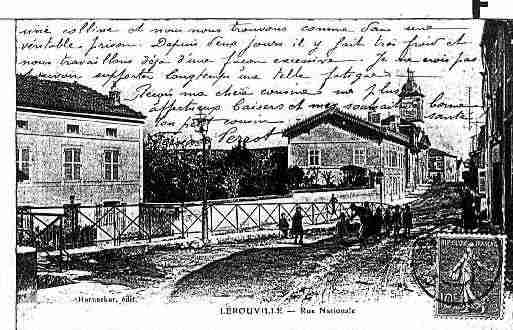 une colline et nous nous trouvons comme dans une
véritable prison. Depuis deux jours il y fait très froid et
nous travaillons déjà d'une façon excessive. Je ne crois pas
pouvoir supporter longtemps une telle fatigue.
Reçois ma chère cousine me plus
affectueux baisers et mes souhaits bonne
santé
Ton petit cousin
Hornecker, édit.
LÉROUVILLE — Rue Nationale